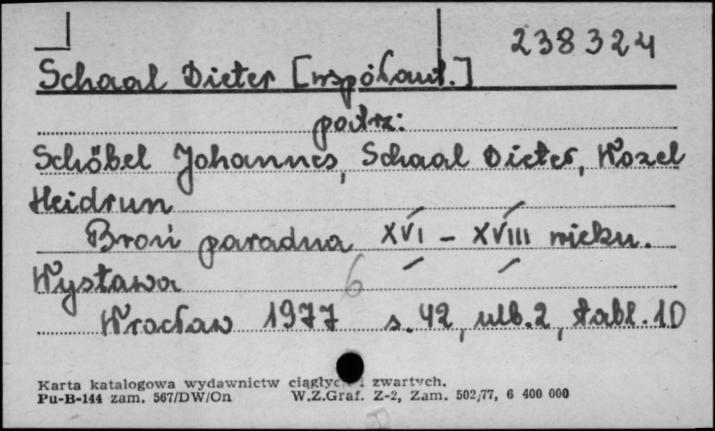 238324
Schaal Dieter [współaut.]
patrz:
Schöbel Johannes, Schaal Dieter, Wozel
Heidrun
Broń paradna XVI - XVIII wieku.
Wystawa 6
Wrocław 1977 s. 42, ulb. 2, tabl. 10
Karta katalogowa wydawnictw ciągłych i zwartych.
Pu-B-144 zam. 567/DW/On W.Z.Graf. Z-2, Zam. 502/77, 6 400 000